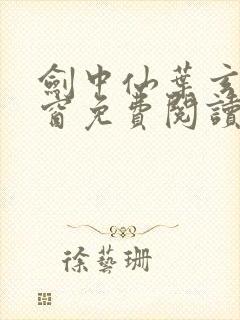 劍中仙葉玄
窗免費閱讀
徐藝珊